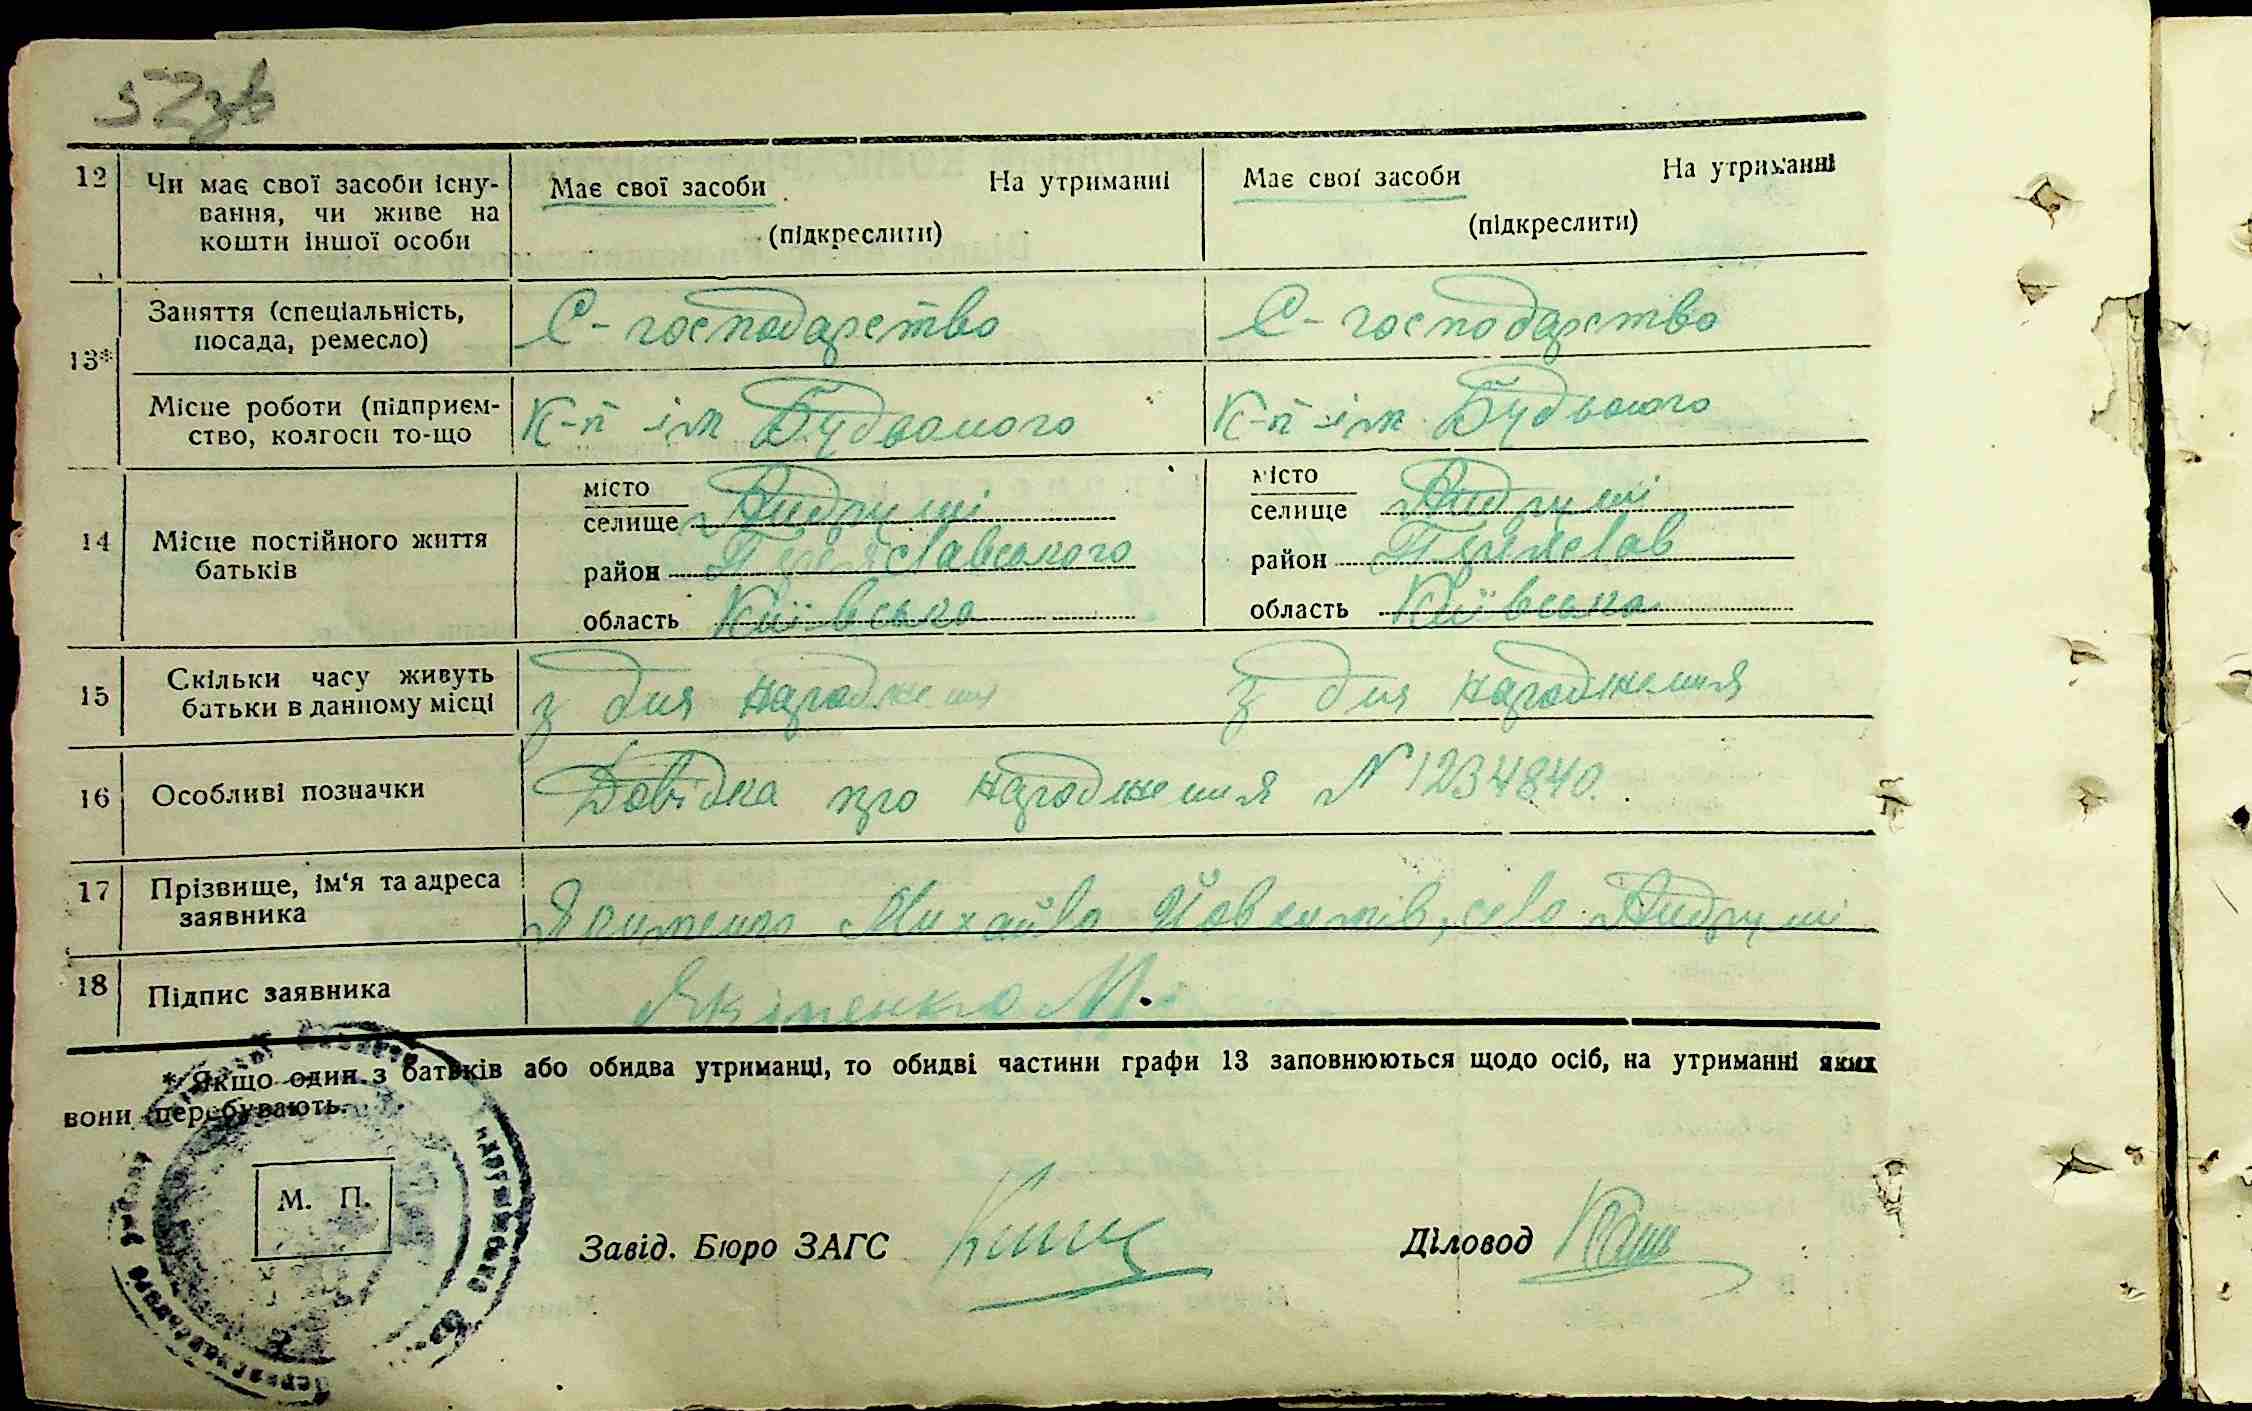 52зв
12 Чи має свої засоби існу- Має свої засоби На утриманні Має свої засоби На утриманні
вання, чи живе на
кошти іншої особи (підкреслити) (підкреслити)
Заняття (спеціальність, С-господарство С-господарство
посада, ремесло)
13*
Місце роботи (підприєм- К-п ім Будьоного К-п ім Будьоного
ство, колгосп то-що
місто місто
селище Андруші селище Андруші
14 Місце постійного життя
батьків район Переяславського район Переяслав
область Київська область Київська
15 Скільки часу живуть з дня народження з дня народження
батьки в данному місці
16 Особливі позначки Довідка про народження N 1234840.
17 Прізвище, ім‘я та адреса
заявника Якименко Михайло село Андруші
18 Підпис заявника Якименко М.
* Якщо один з батьків або обидва утриманці, то обидві частини графи 13 заповнюються щодо осіб, на утриманні яких
вони перебувають.
М. П.
Завід. Бюро ЗАГС Діловод